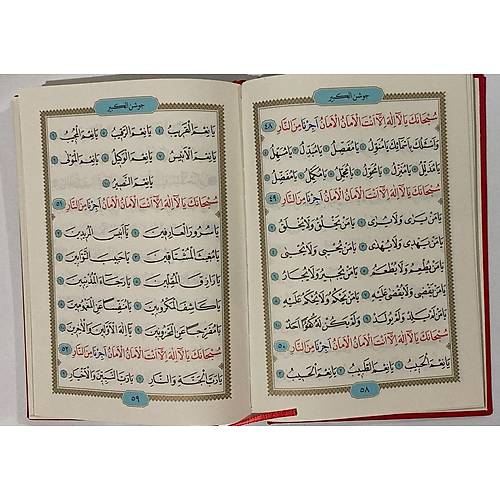 جوشن الكبير
سُبْحَانَكَ يَا لَا إِلٰهَ إِلَّا أَنْتَ الْأَمَانُ الْأَمَانُ أَجِرْنَا مِنَ النَّارِ ٤٨
وَأَسْئَلُكَ بِأَسْمَائِكَ يَا مُنَوِّلُ يَا مُفَصِّلُ يَا مُبَدِّلُ يَا مُسَهِّلُ
يَا مُذَلِّلُ يَا مُنَزِّلُ يَا مُحَوِّلُ يَا مُجَمِّلُ يَا مُكَمِّلُ يَا مُفَضِّلُ
سُبْحَانَكَ يَا لَا إِلٰهَ إِلَّا أَنْتَ الْأَمَانُ الْأَمَانُ أَجِرْنَا مِنَ النَّارِ ٤٩
يَا مَنْ يَرَى وَلَا يُرَى يَا مَنْ يَخْلُقُ وَلَا يُخْلَقُ
يَا مَنْ يَهْدِى وَلَا يُهْدَى يَا مَنْ يُحْيِى وَلَا يُحْيَى
يَا مَنْ يُطْعِمُ وَلَا يُطْعَمُ يَا مَنْ يُجِيرُ وَلَا يُجَارُ
يَا مَنْ يَقْضِى وَلَا يُقْضَى عَلَيْهِ يَا مَنْ يَحْكُمُ وَلَا يُحْكَمُ عَلَيْهِ
يَا مَنْ لَمْ يَلِدْ وَلَمْ يُولَدْ وَلَمْ يَكُنْ لَهُ كُفُوًا أَحَدٌ
سُبْحَانَكَ يَا لَا إِلٰهَ إِلَّا أَنْتَ الْأَمَانُ الْأَمَانُ أَجِرْنَا مِنَ النَّارِ ٥٠
يَا نِعْمَ الْحَبِيبُ يَا نِعْمَ الطَّبِيبُ يَا نِعْمَ الْحَسِيبُ
٥٨
جوشن الكبير
يَا نِعْمَ الْقَرِيبُ يَا نِعْمَ الرَّقِيبُ يَا نِعْمَ الْمُجِيبُ
يَا نِعْمَ الْأَنِيسُ يَا نِعْمَ الْوَكِيلُ يَا نِعْمَ الْمَوْلَى
يَا نِعْمَ النَّصِيرُ
سُبْحَانَكَ يَا لَا إِلٰهَ إِلَّا أَنْتَ الْأَمَانُ الْأَمَانُ أَجِرْنَا مِنَ النَّارِ ٥١
يَا سُرُورَ الْعَارِفِينَ يَا أَنِيسَ الْمُرِيدِينَ
يَا مُغِيثَ الْمُشْتَاقِينَ يَا حَبِيبَ التَّوَّابِينَ
يَا رَازِقَ الْمُقِلِّينَ يَا رَجَاءَ الْمُذْنِبِينَ
يَا كَاشِفَ الْمَكْرُوبِينَ يَا مُنَفِّسًا عَنِ الْمَغْمُومِينَ
يَا مُفَرِّجًا عَنِ الْمَحْزُونِينَ يَا إِلٰهَ الْأَوَّلِينَ وَالْآخِرِينَ
سُبْحَانَكَ يَا لَا إِلٰهَ إِلَّا أَنْتَ الْأَمَانُ الْأَمَانُ أَجِرْنَا مِنَ النَّارِ ٥٢
يَا رَبَّ الْجَنَّةِ وَالنَّارِ يَا رَبَّ النَّبِيِّينَ وَالْأَخْيَارِ
٥٩